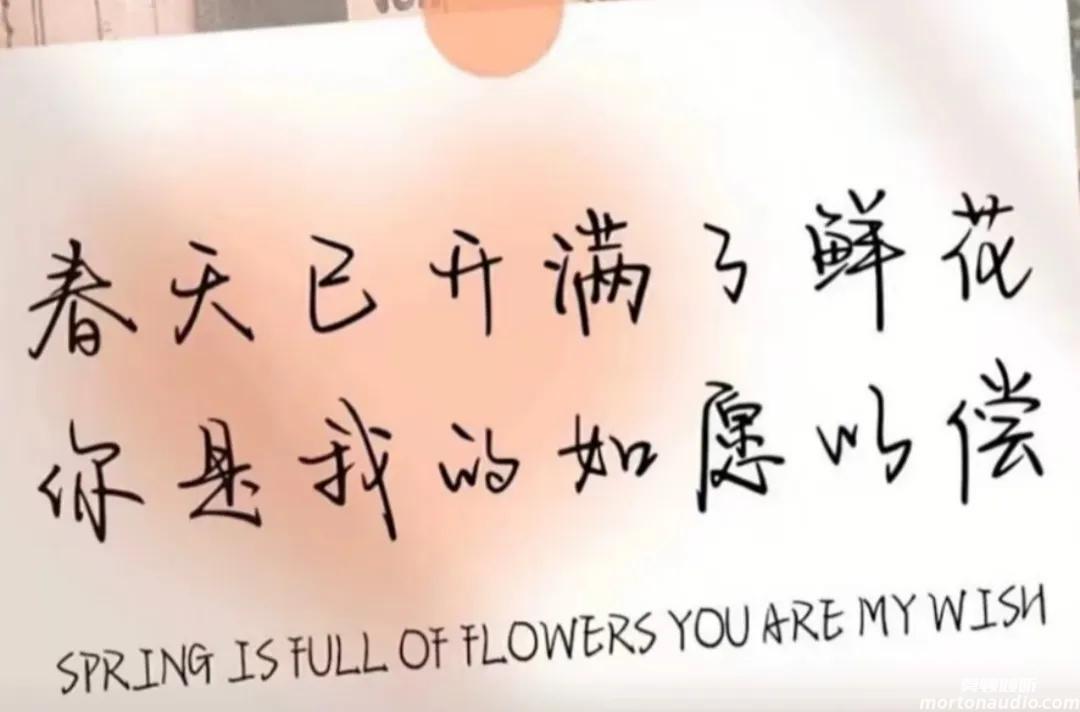 春天已开满了鲜花
你是我的如愿以偿
SPRING IS FULL OF FLOWERS YOU ARE MY WISH
mortonaudio.com